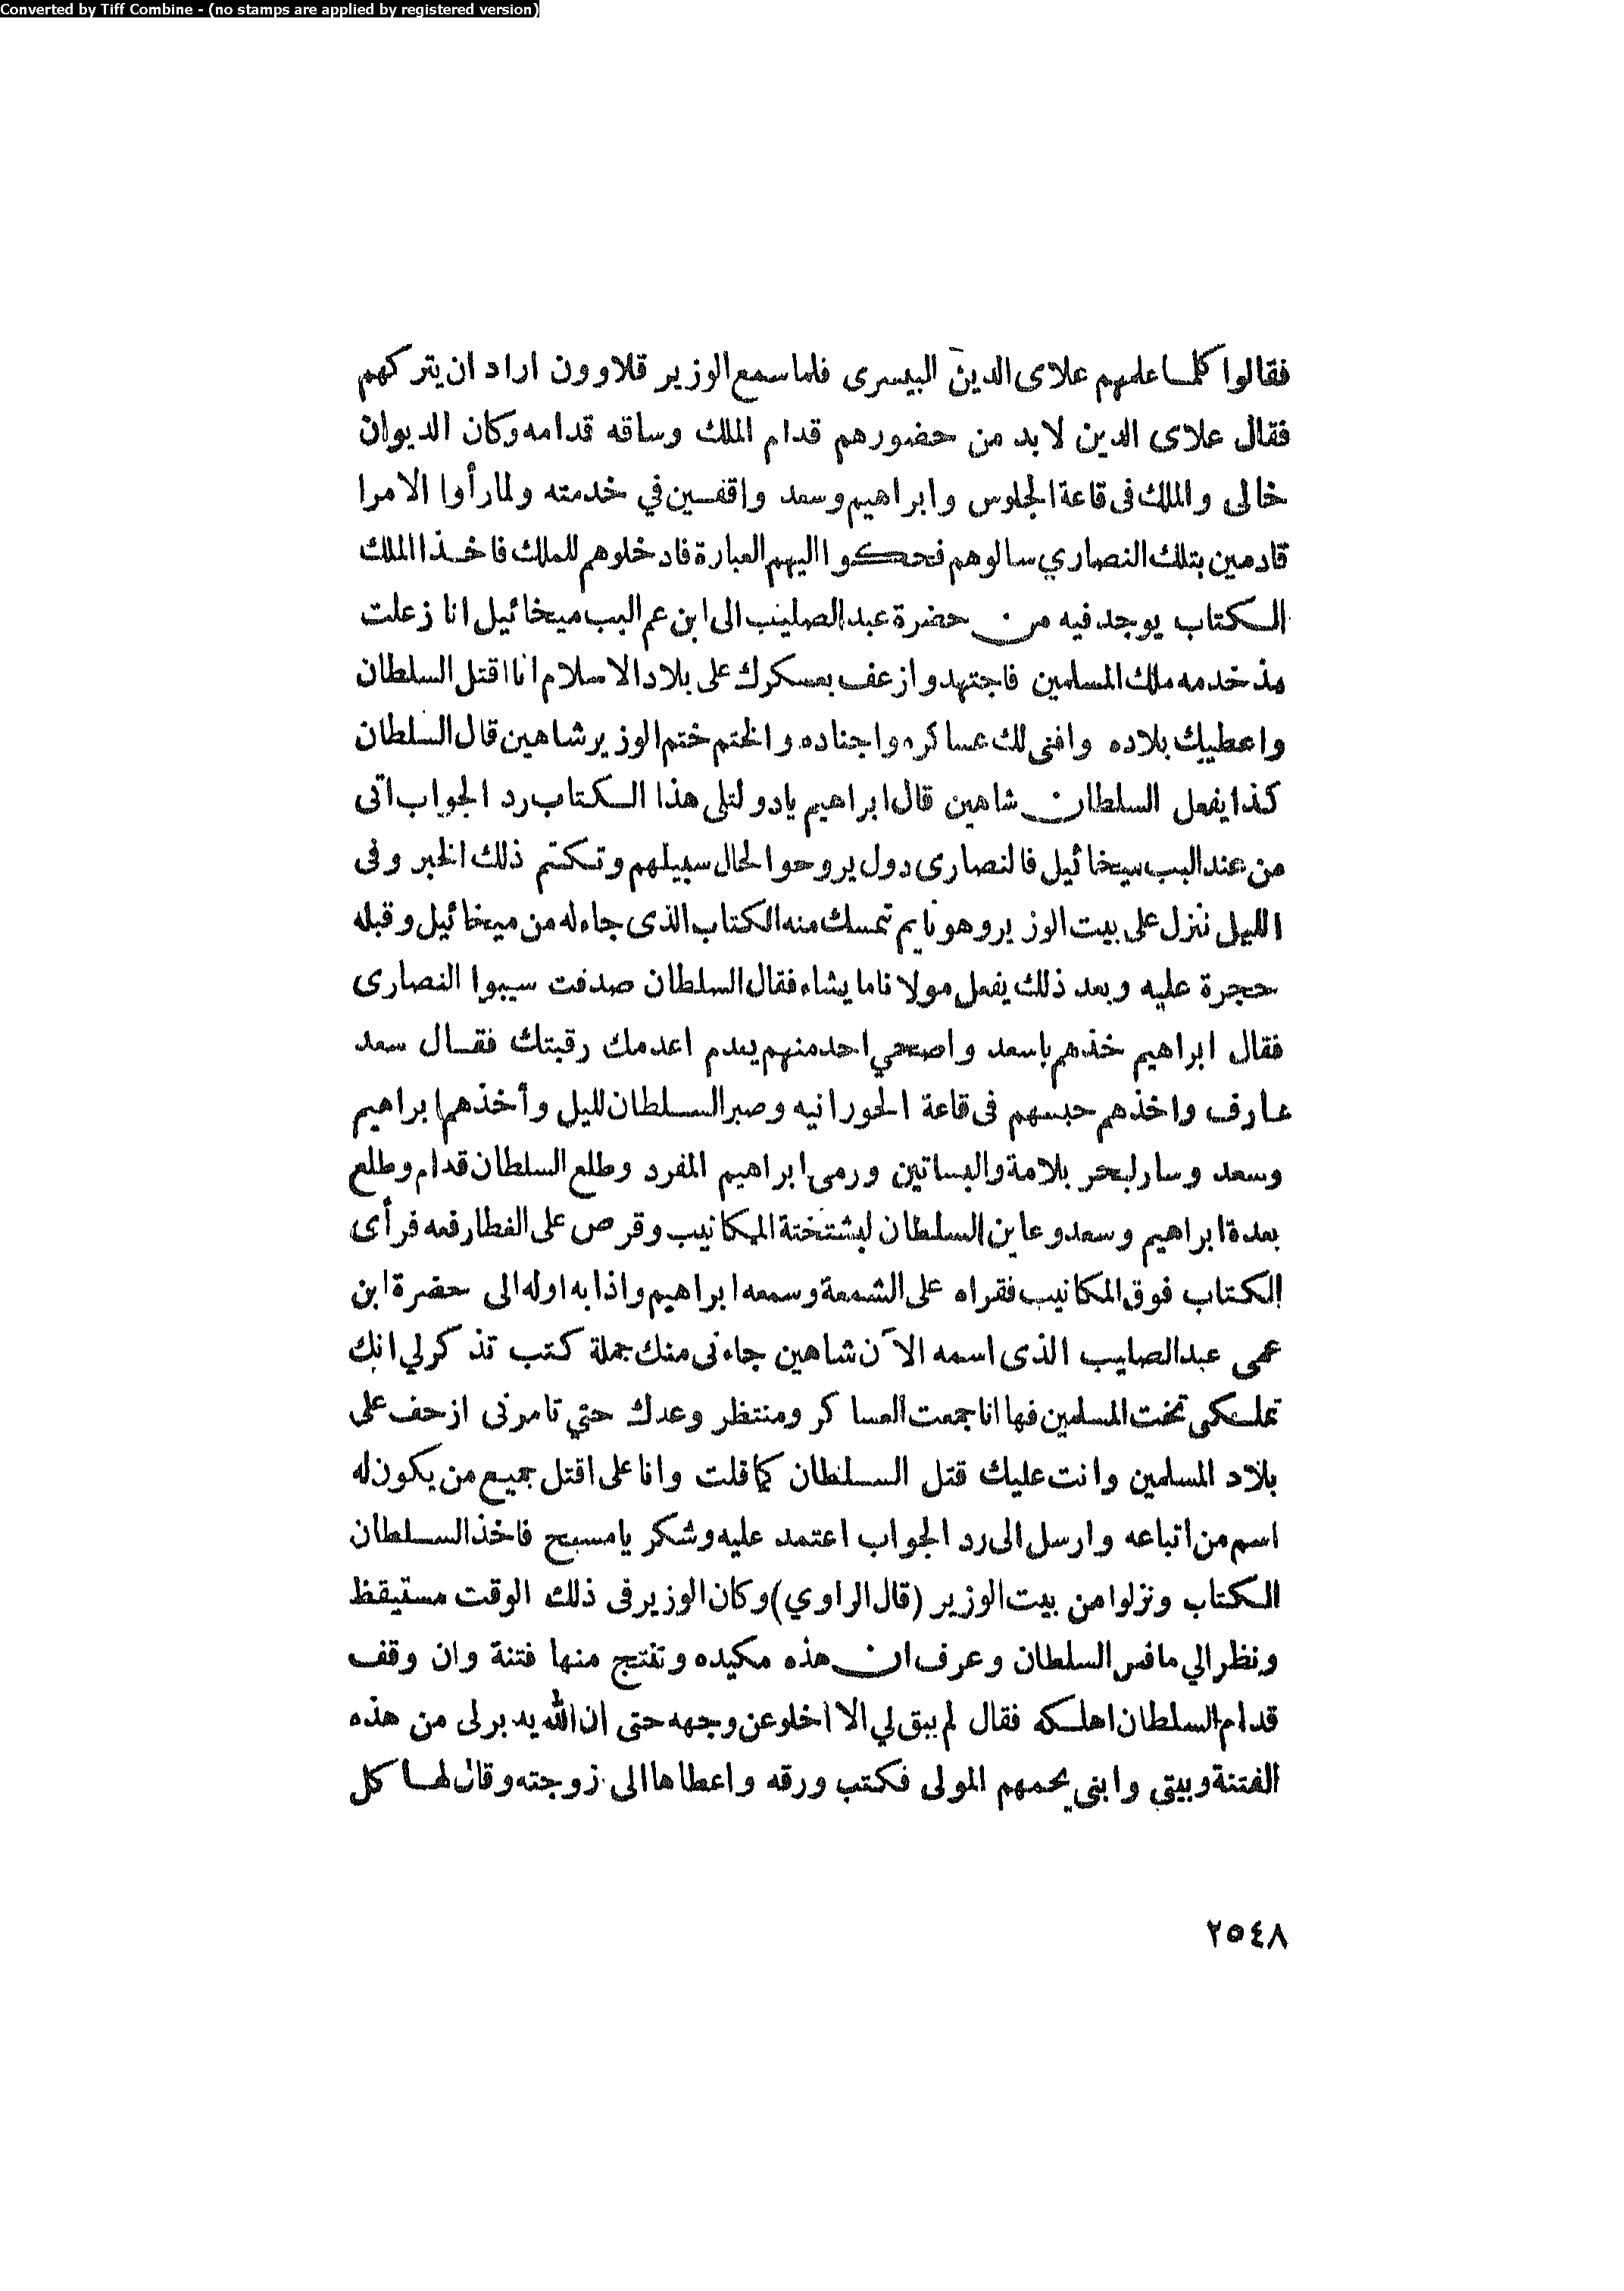 Converted by Tiff Combine - (no stamps are applied by registered version)
فقالوا كلما علمهم علاى الدين البيسرى فلما سمع الوزير قلاوون اراد ان يتركهم
فقال علاى الدين لابد من حضورهم قدام الملك وساقه قدامه وكان الديوان
خالى والملك فى قاعة الجلوس وابراهيم وسعد واقفين في خدمته ولما رأوا الامرا
قادمين بتلك النصاري سالوهم فحكوا اليهم العبارة فادخلوهم للملك فاخذ الملك
الكتاب يوجد فيه من حضرة عبد الصليب الى ابن عم البب ميخائيل انا زعلت
مذ خدمه ملك المسلمين فاجتهد وازعف بعسكرك على بلاد الاسلام انا اقتل السلطان
واعطيك بلاده وافنى لك عساكره واجناده والختم ختم الوزير شاهين قال السلطان
كذا يفعل السلطان شاهين قال ابراهيم يادولتلى هذا الكتاب رد الجواب اتى
من عند البب سيخائيل فالنصارى دول يروحوا لحال سبيلهم وتكتم ذلك الخبر وفى
الليل ننزل على بيت الوزير وهو نايم تمسك منه الكتاب الذى جاءله من ميخائيل وقبله
حجرة عليه وبعد ذلك يفعل مولانا ما يشاء فقال السلطان صدفت سيبوا النصارى
فقال ابراهيم خذهم ياسعد واصحي احد منهم يعدم اعدمك رقبتك فقال سعد
عارف واخذهم حبسهم فى قاعة الحورانيه وصبر السلطان لليل وأخذهم ابراهيم
وسعد وسار لبحر بلامة والبساتين ورمى ابراهيم المفرد وطلع السلطان قدام وطلع
بعدة ابراهيم وسعد وعاين السلطان لبشتختة المكانيب وقرص على الفطار قعه فرأى
الكتاب فوق المكانيب فقراه على الشمعة وسمعه ابراهيم واذا به اوله الى حضرة ابن
عمى عبد الصليب الذى اسمه الآن شاهين جاءنى منك جملة كتب تذكر لي انك
تملكى تخت المسلمين فها انا جمعت العساكر ومنتظر وعدك حتي تامرنى ازحف على
بلاد المسلمين وانت عليك قتل السلطان كما قلت وانا على اقتل جميع من يكون له
اسم من اتباعه وارسل الى رد الجواب اعتمد عليه وشكر يا مسبح فاخذ السلطان
الكتاب ونزلوا من بيت الوزير (قال الراوي) وكان الوزير فى ذلك الوقت مستيقظ
ونظر الي مافس السلطان وعرف ان هذه مكيده وتفتج منها فتنة وان وقف
قدام السلطان اهلكه فقال لم يبق لي الا اخلو عن وجهه حتى ان الله يدبر لى من هذه
الفتنة وبيتى وابنى يحمهم المولى فكتب ورقه واعطاها الى زوجته وقال لها كل
٢٥٤٨